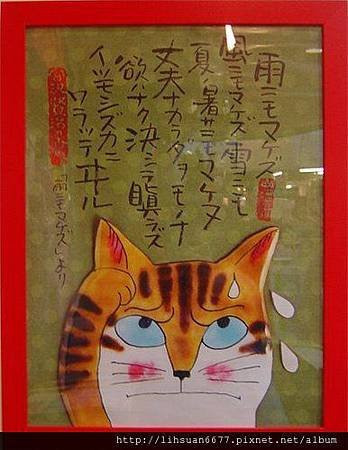 雨ニモマケズ
風ニモマケズ雪ニモ
夏ノ暑サニモマケヌ
丈夫ナカラダヲモチ
慾ハナク決シテ瞋ラズ
イツモシズカニ
ワラッテヰル
宮沢賢治
「雨ニモマケズ」より
http://lihsuan6677.pixnet.net/album